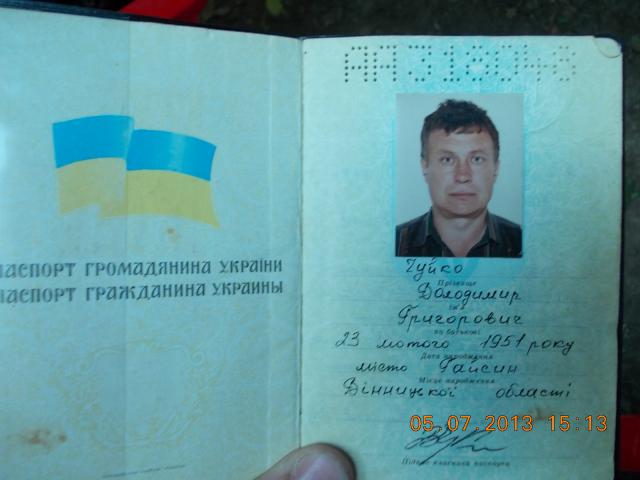 ПАСПОРТ ГРОМАДЯНИНА УКРАЇНИ
ПАСПОРТ ГРАЖДАНИНА УКРАИНЫ
Чуйко
Прізвище
Володимир
Ім'я
Григорович
по батькові
23 лютого 1951 року
Дата народження
місто Гайсин
Місце народження
Вінницької області
05.07.2013 15:13
Підпис власника паспорта